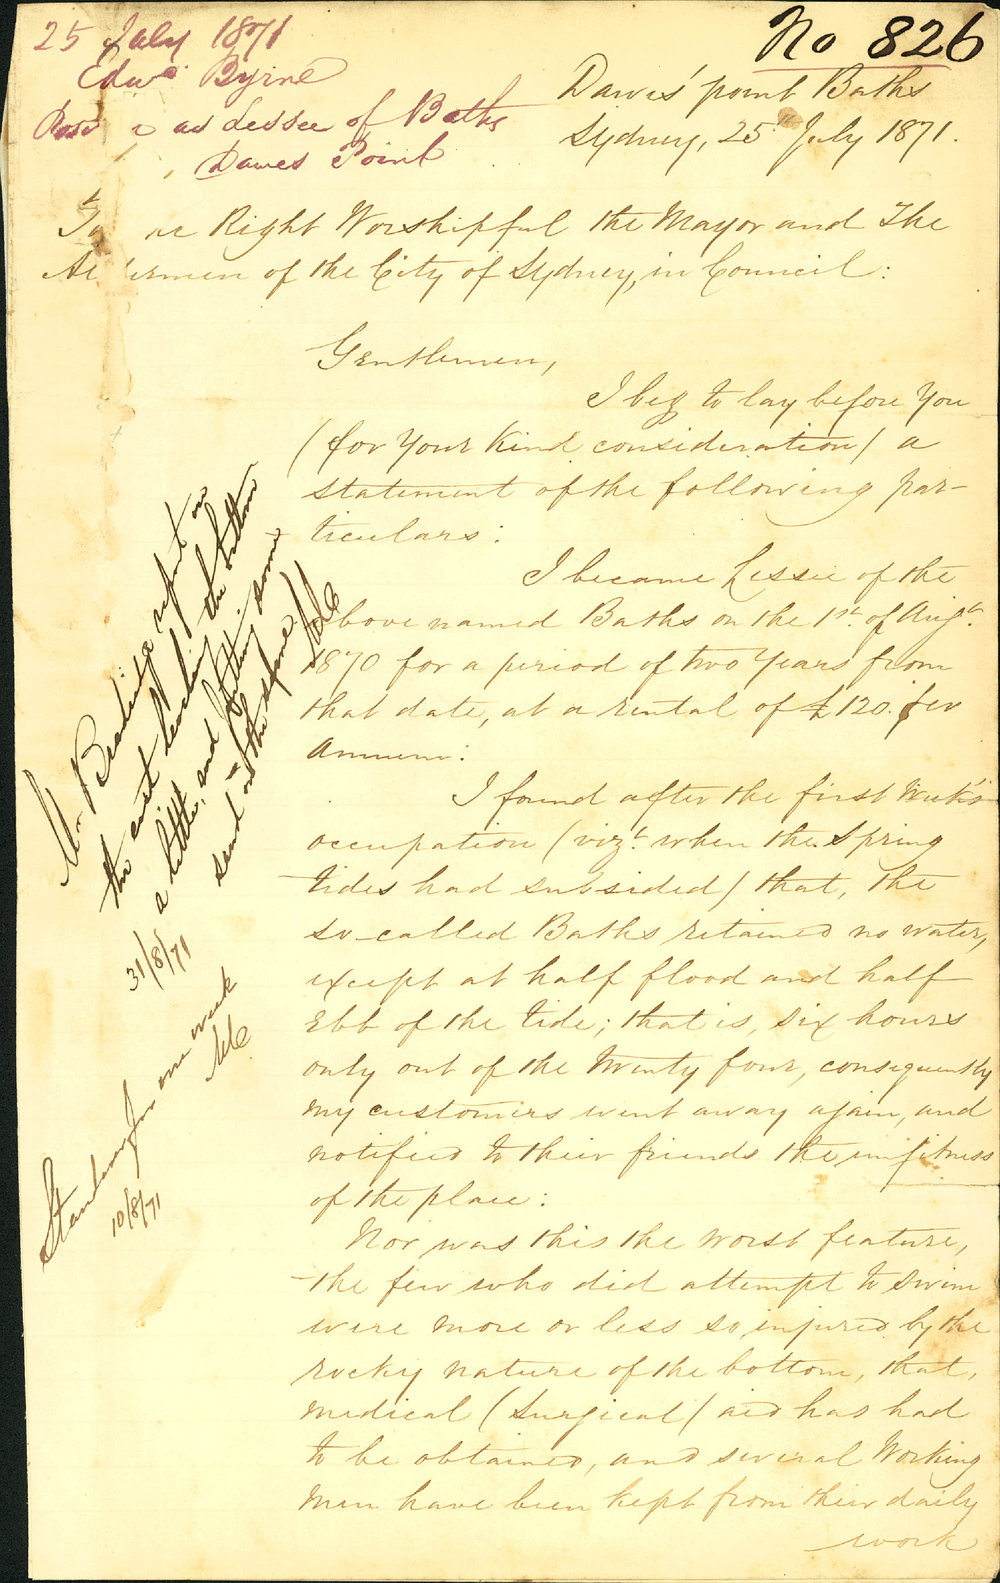 25 July 1871
Edwd Byrne
as Lessee of Baths
Dawes Point
No 826
Dawes' point Baths
Sydney, 25th July 1871.
To Right Worshipful the Mayor and The
of the City of Sydney, in Council:
Gentlemen,
I beg to lay before You
(for Your Kind consideration) a
statement of the following par-
ticulars:
I became Lessee of the
above named Baths on the 1st. of Augt.
1870 for a period of two Years from
that date, at a rental of £120. per
Annum:
I found after the first Week's
occupation (vizt. when the Spring
tides had subsided) that, the
so-called Baths retained no water,
except at half flood and half
Ebb of the tide; that is, six hours
only out of the twenty four, consequently
my customers went away again, and
notified to their friends the unfitness
of the place:
Nor was this the worst feature,
the few who did attempt to swim
were more or less so injured by the
rocky nature of the bottom, that,
medical (Surgical) aid has had
to be obtained, and several Working
Men have been kept from their daily
work
Mr Bradridge report on
the cost levelling the bottom
a little, and putting some
sand on the same
31/8/71
Standing for one week
10/8/71